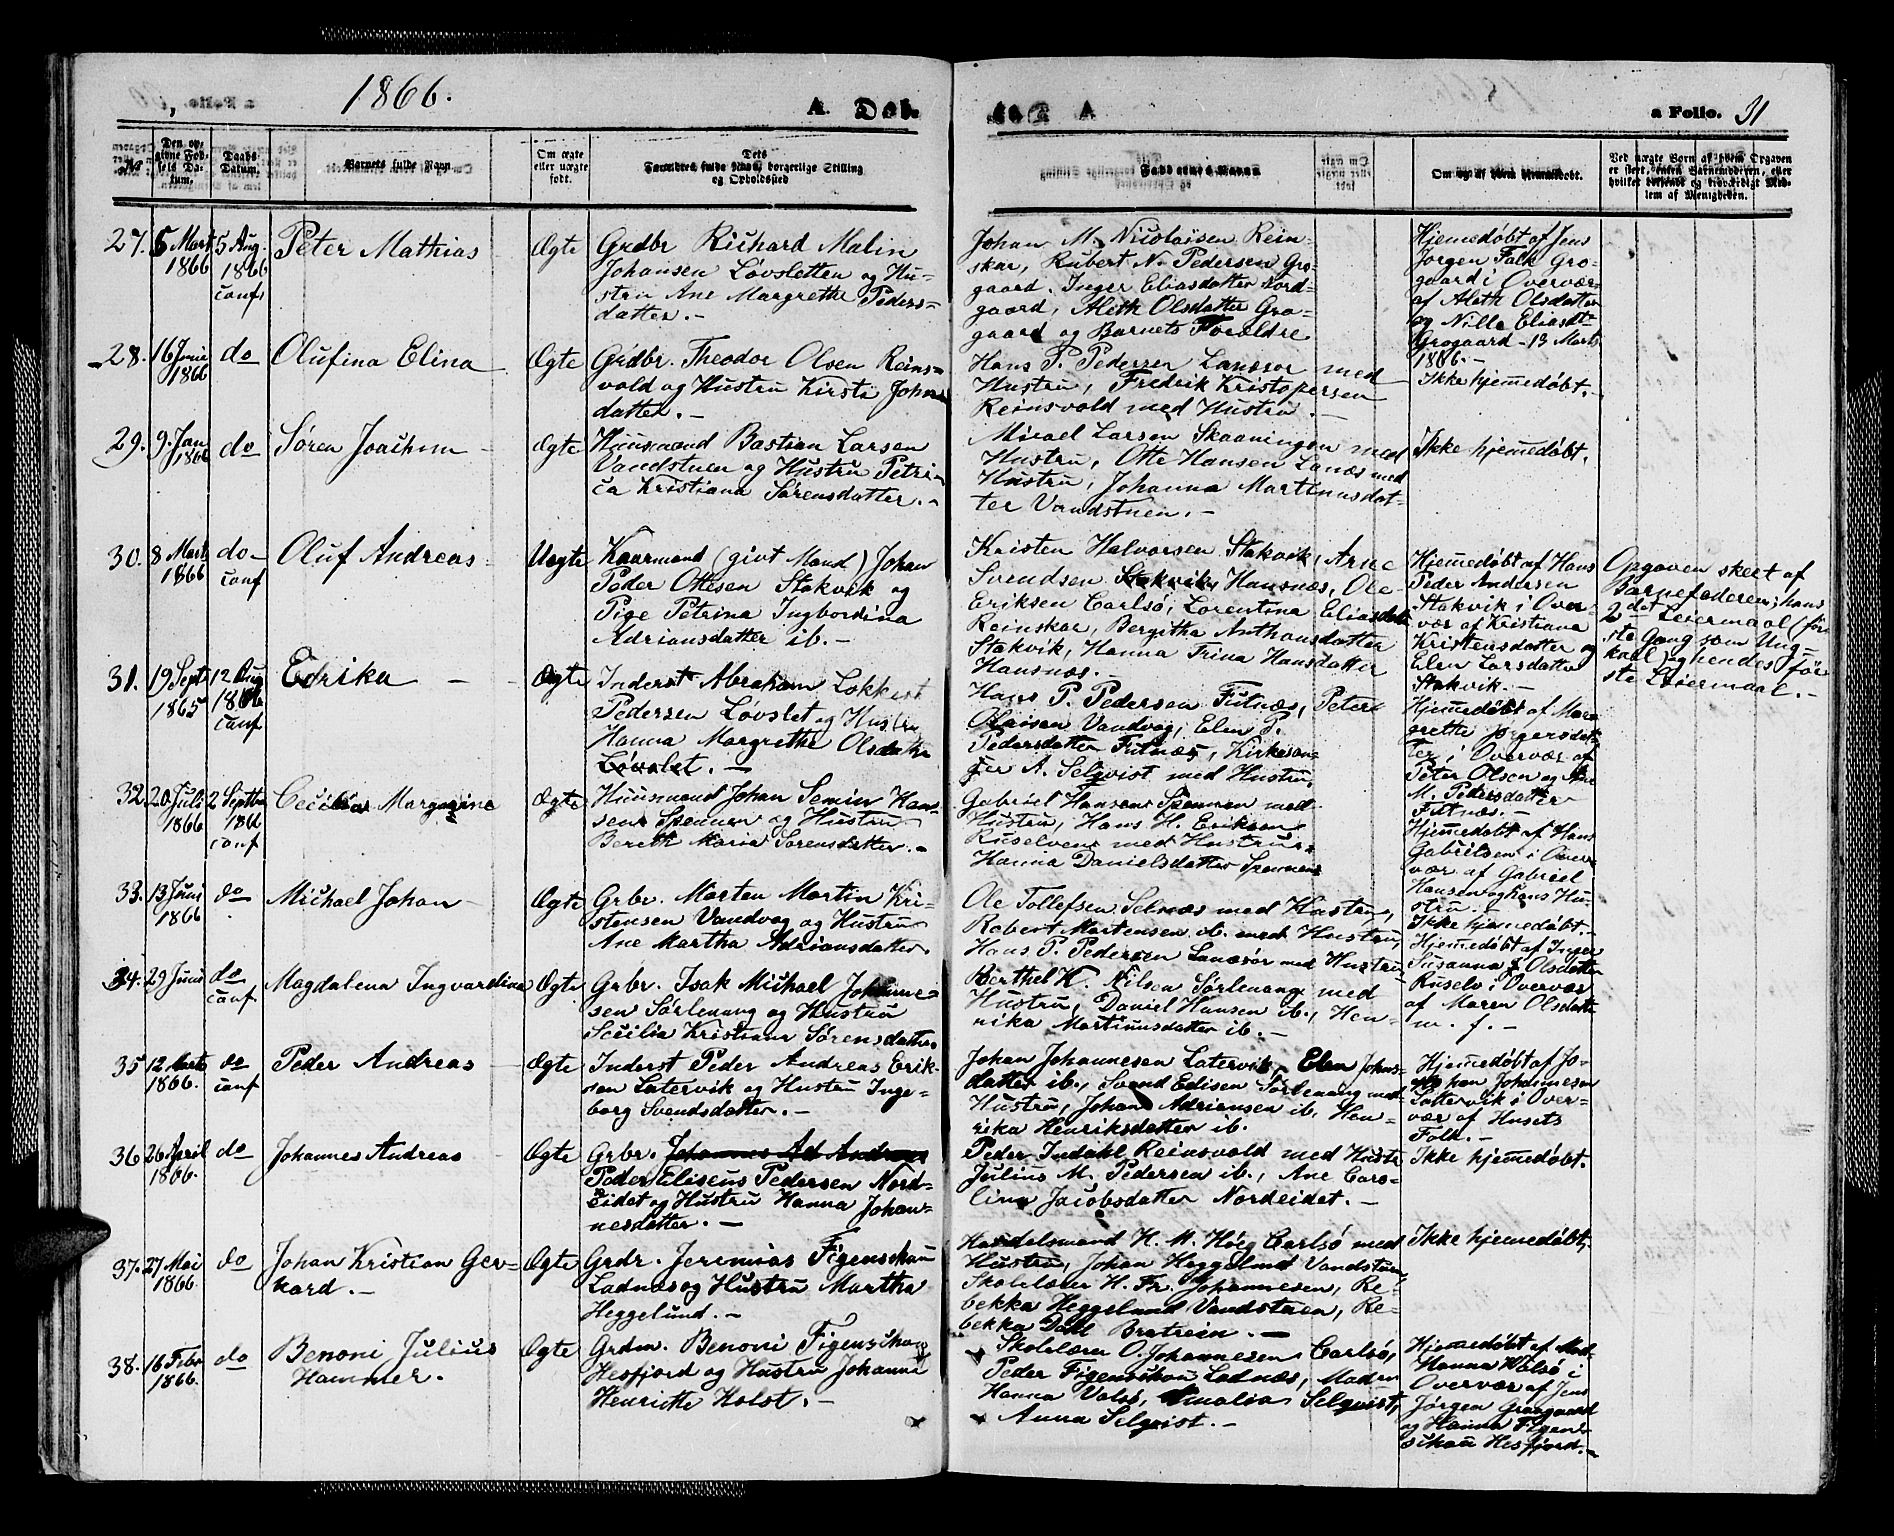 1866.
A. Døbte
a Folio. 31
No
Den opgivne Fødsels Datum.
Daabs Datum.
Barnets fulde Navn.
Om ægte eller uægte født.
Dets Forældres fulde Navn, borgerlige Stilling og Opholdssted
Faddernes Navne
Om og af hvem hjemmedøbt.
Ved uægte Børn af hvem Opgaven er skeet, enten Barnemoderen, eller hvilket boesatte og troværdigt Medlem af Menigheden.
27. 5 Mart 1866 5 Aug. 1866 conf Peter Mathias Ægte
Grdbr Richard Malin
Johansen Løvsletten og Hu-
stru Ane Margrethe Peders-
datter.-
Johan M. Nicolaisen Rein-
skar, Rubert N. Pedersen Gro-
gaard, Inger Eliasdatter Nord-
gaard, Aleth Olsdatter Gro-
gaard og Barnets Forældre
Hjemmedøbt af Jens
Jørgen Falk Gro-
gaard i Overvær
af Aleth Olsdatter
og Nille Eliasdtr
Grogaard - 13 Marts
1866.-
28. 16 Juni 1866 do Olufina Elina Ægte
Grdbr. Theodor Olsen Reins-
vold og Hustru Kirsti Johns
datter.-
Hans P. Pedersen Lanesør med
Hustru, Fredrik Kristopersen
Reinsvold med Hustru.-
Ikke hjemmedøbt.-
29. 9 Jan 1866 do Søren Joachim Ægte
Huusmand Bastian Larsen
Vandstuen og Hustru Petri-
ca Kristiana Sørensdatter.-
Micael Larsen Skaaningen med
Hustru, Otte Hansen Lanes med
Hustru, Johanna Martinusdat-
ter Vandstuen.-
Ikke hjemmedøbt.
30. 8 Mart 1866 do conf Oluf Andreas Uægte
Kaarmand (givt Mand) Johan
Peder Ottesen Stakvik og
Pige Petrina Ingbordina
Adriansdatter ib.-
Kristen Halvorsen Stakvik, Arne
Svendsen Hansnæs, Ole
Eriksen Carlsø, Lorentina Eliasdatter
Reinskar, Bergitha Anthonsdatter
Stakvik, Hanna Trina Hansdatter
Hansnæs.
Hjemmedøbt af Hans
Peder Andersen
Stakvik i Over-
vær af Kristiana
Kristensdatter og
Elen Larsdatter
Stakvik.-
Opgaven skeet af
Barnefaderen; hans
2det Leiermaal (før-
ste Gang som Ung-
karl) og hendes før-
ste Leiermaal.-
31. 19 Sept 1865 12 Aug 1866 conf Edrika Ægte
Inderst Abraham Lokkert
Pedersen Løvslet og Hustru
Hanna Margrethe Olsdatter
Løvslet.-
Hans P. Pedersen Futnæs, Peter
Olaisen Vandvag, Elen P.
Pedersdatter Futnæs, Kirkesan-
ger A. Selqvist med Hustru
Hjemmedøbt af Mar-
grethe Jørgensdat-
ter i Overvær af
Peter Olsen og Ane
M. Pedersdatter
Futnæs.-
32. 20 Juli 1866 2 Septbr 1866 conf Cecilia Margazina Ægte
Huusmand Johan Semin Han-
sen Spennen og Hustru
Berith Maria Sørensdatter.-
Gabriel Hansen Spennen med
Hustru, Hans H. Eriksen
Ruselven med Hustru,
Hanna Danielsdatter Spennen
Hjemmedøbt af Hans
Gabrielsen i Over-
vær af Gabriel
Hansen og hans Hu-
stru.-
33. 13 Juni 1866 do Michael Johan Ægte
Grbr. Morten Martin Kri-
stensen Vandvag og Hustru
Ane Martha Adriansdatter
Ole Tollefsen Selnæs med Hustru,
Robert Mortensen ib. med Hustru,
Hans P. Pedersen Lanesør med Hustru
Ikke hjemmedøbt.-
34. 29 Juni do conf Magdalena Ingvardina Ægte
Grbr. Isak Michael Johanne-
sen Sørlenang og Hustru
Secilia Kristiane Sørensdatter
Berthel K. Nilsen Sørlenang med
Hustru, Daniel Hansen ib., Hen-
rika Martinusdatter ib.-
Hjemmedøbt af Inger
Susanna Olsdatter
Ruselv i Overvær
af Maren Olsdatter
m. f.-
35. 12 Marts 1866. do conf Peder Andreas Ægte
Inderst Peder Andreas Erik-
sen Latervik og Hustru Inge-
borg Svendsdatter.-
Johan Johannesen Latervik, Elen Johns-
datter ib., Svend Edisen Sørlenang med
Hustru, Johan Adriansen ib., Hen-
rika Henriksdatter ib.
Hjemmedøbt af Jo-
han Johannesen
Lattervik i Over-
vær af Husets
Folk.-
36. 26 April 1866. do Johannes Andreas Ægte
Grbr. Johannes Ad Andreas
Peder Eliseus Pedersen Nord-
eidet og Hustru Hanna Johan-
nesdatter.-
Peder Indahl Reinsvold med Hustr
Julius M. Pedersen ib., Ane Caro-
lina Jacobsdatter Nordeidet.-
Ikke hjemmedøbt.
37. 27 Mai 1866. do Johan Kristian Ger-
hard.- Ægte
Grdr. Jeremias Figenschau
Ladnæs og Hustru Martha
Heggelund.-
Handelsmand H. M. Høeg Carlsø med
Hustru, Johan Heggelund Vandstuen,
Skolelærer H. Fr. Johannesen, Re-
bekka Heggelund Vandstuen, Re-
bekka Dahl Bratrein.-
Ikke hjemmedøbt.
38. 16 Febr 1866. do Benoni Julius
Hammer. Ægte
Grdm. Benoni Figenschou
Hesfjord og Hustru Johanna
Henriette Holst.-
Skolelærer O. Johannesen Carlsø,
Peder Figenschou Ladnæs, Madm
Hanna Valsø, Amalia Selqvist,
Anna Selqvist.-
Hjemmedøbt af Mad.
Hanna Walsø i
Overvær af Jens
Jørgen Graagaard
og Hanna Figen-
schau Hesfjord.-